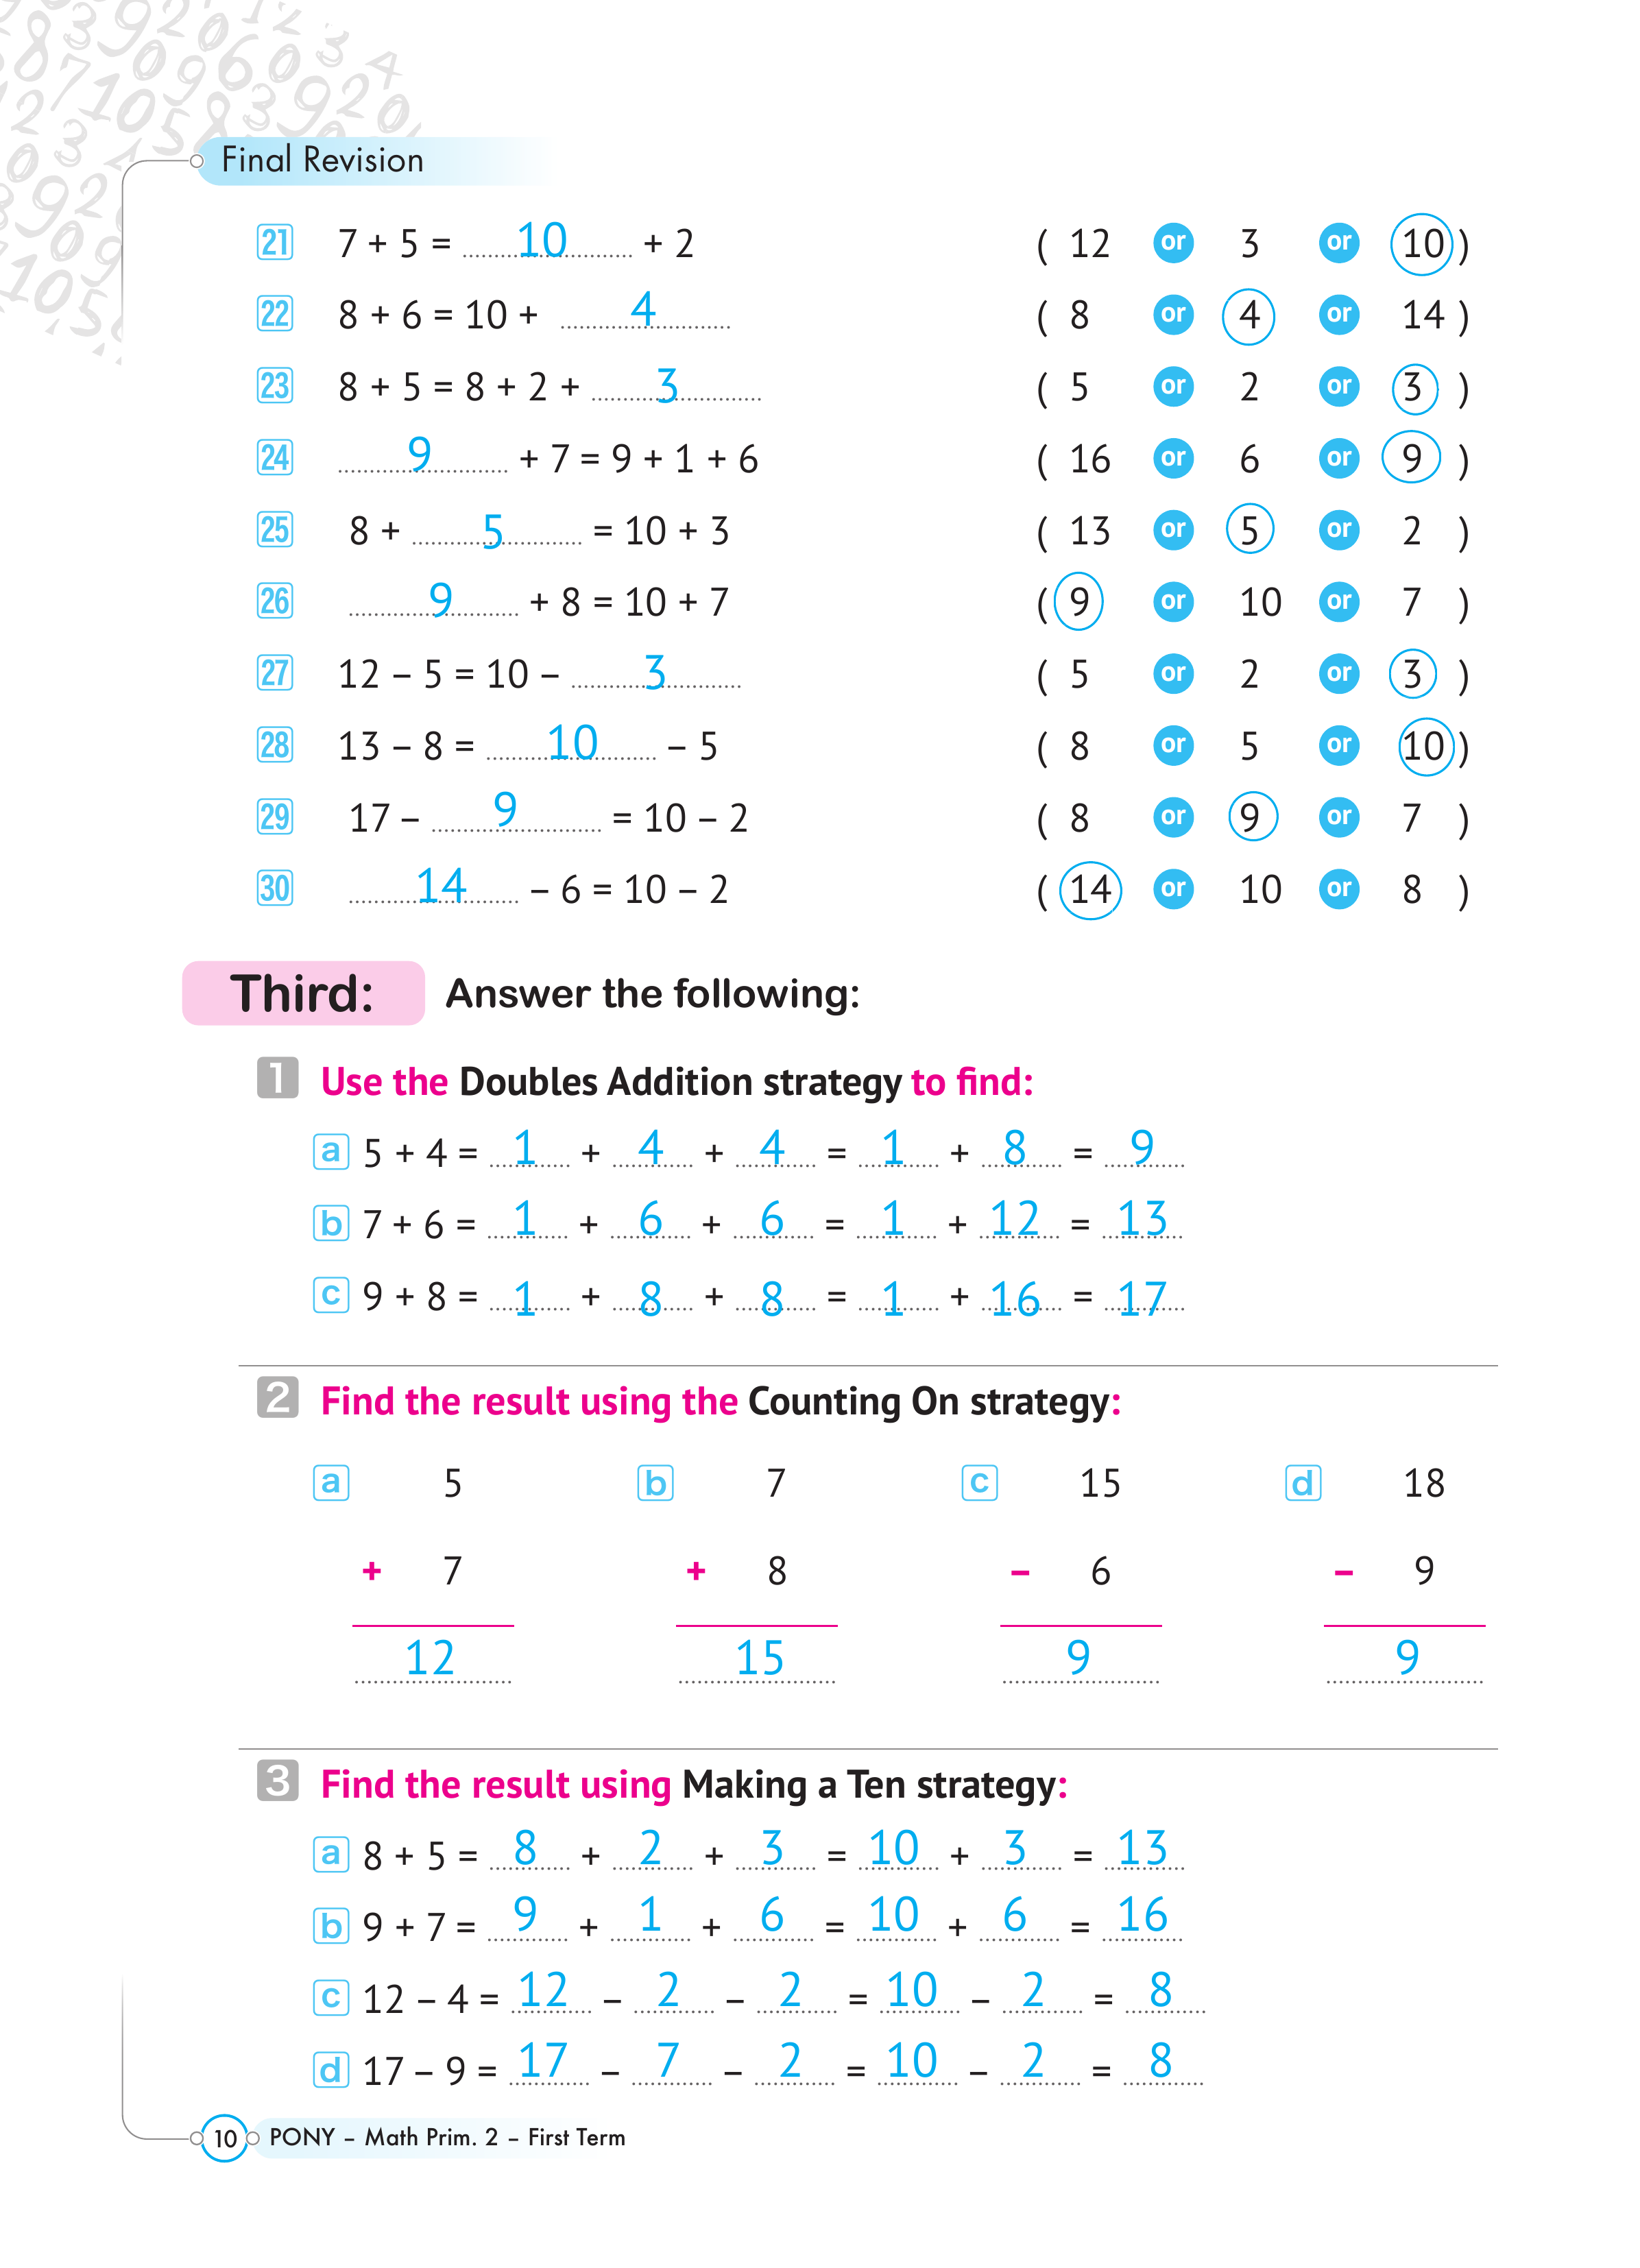 Final Revision
21 7 + 5 = 10 + 2 ( 12 or 3 or 10 )
22 8 + 6 = 10 + 4 ( 8 or 4 or 14 )
23 8 + 5 = 8 + 2 + 3 ( 5 or 2 or 3 )
24 9 + 7 = 9 + 1 + 6 ( 16 or 6 or 9 )
25 8 + 5 = 10 + 3 ( 13 or 5 or 2 )
26 9 + 8 = 10 + 7 ( 9 or 10 or 7 )
27 12 – 5 = 10 – 3 ( 5 or 2 or 3 )
28 13 – 8 = 10 – 5 ( 8 or 5 or 10 )
29 17 – 9 = 10 – 2 ( 8 or 9 or 7 )
30 14 – 6 = 10 – 2 ( 14 or 10 or 8 )
Third: Answer the following:
1 Use the Doubles Addition strategy to find:
a 5 + 4 = 1 + 4 + 4 = 1 + 8 = 9
b 7 + 6 = 1 + 6 + 6 = 1 + 12 = 13
c 9 + 8 = 1 + 8 + 8 = 1 + 16 = 17
2 Find the result using the Counting On strategy:
a 5 b 7 c 15 d 18
+ 7 + 8 – 6 – 9
12 15 9 9
3 Find the result using Making a Ten strategy:
a 8 + 5 = 8 + 2 + 3 = 10 + 3 = 13
b 9 + 7 = 9 + 1 + 6 = 10 + 6 = 16
c 12 – 4 = 12 – 2 – 2 = 10 – 2 = 8
d 17 – 9 = 17 – 7 – 2 = 10 – 2 = 8
10 PONY – Math Prim. 2 – First Term